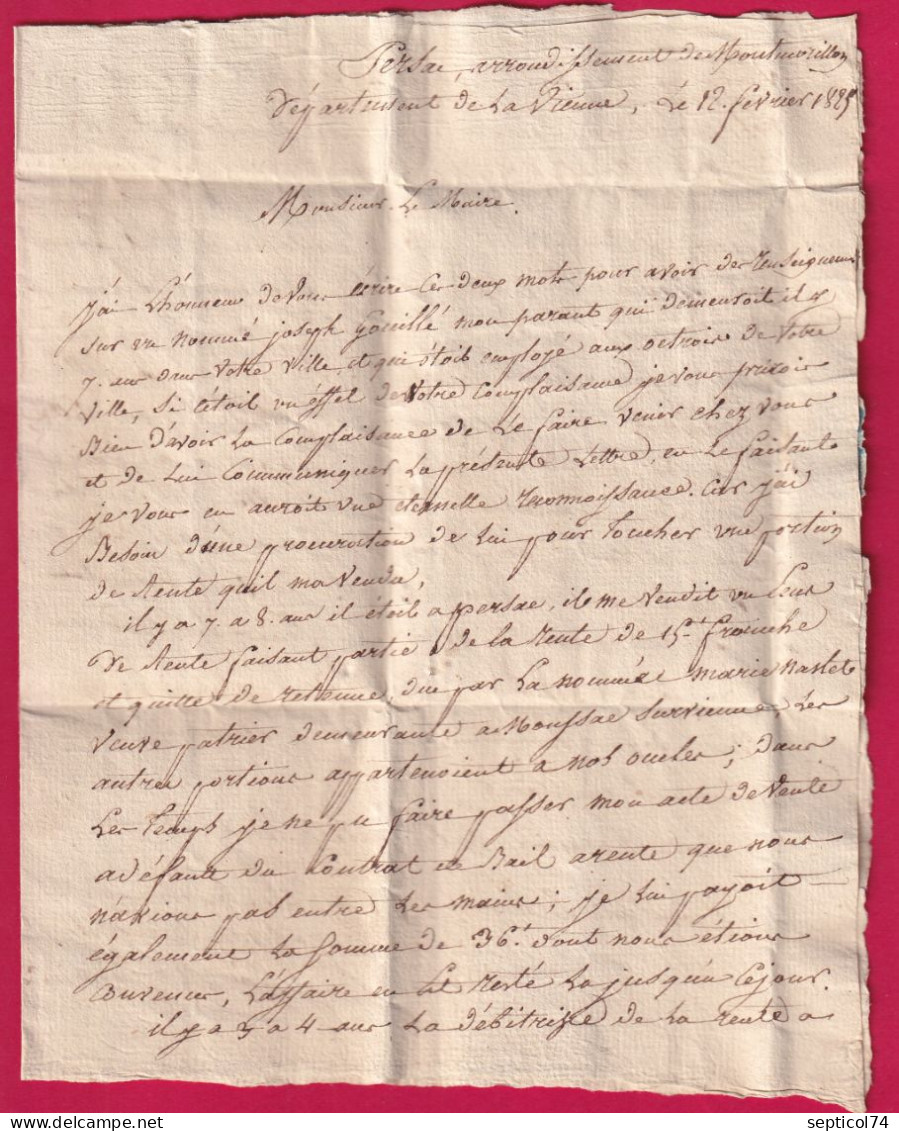 Persac, arrondissement de Montmorillon
Département de La Vienne, Le 12. février 1825
Monsieur Le Maire.
j'ai L'honneur de vous écrire Ces deux mots pour avoir des renseignemens
sur un nommé joseph Gouillé mon parant qui demeuroit il y
7. ans dans votre ville, et qui étoit employé aux octrois de votre
ville, Si C'étoit un éffet de votre Complaisance je vous prierois
Bien d'avoir La Complaisance de Le faire venir chez vous
et de Lui Communiquer La présente Lettre, en Le faisant
je vous en auroit une éternelle reconnoissance. Car j'ai
Besoin d'une procuration de Lui pour toucher une portion
de rente quil ma vendu,
il y a 7. a 8. ans il étoit a persac, il me vendit un Sens
De rente faisant partie de la rente de 15f. franche
et quitte de retenue, due par La nommée marie Nastet
veuve patrier demeurante a Moussac sur vienne, Les
autres portions appartenoient a nos oncles; dans
Les temps je ne pu faire passer mon acte de vente
a défaut du Contrat de Bail a rente que nous
n'avions pas entre Les mains; je Lui payoit
également La Somme de 36f. dont nous étions
Convenus, L'affaire en est resté La jusqu'a Cejour.
il y a 3 a 4 ans La débitrise de La rente a
septicol74